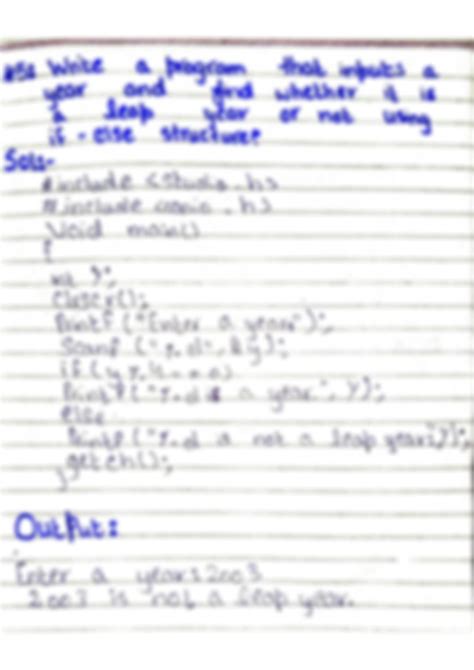 Write a program that inputs a
year and find whether it is
a leap year or not using
if - else structure?
Sol:-
#include <stdio.h>
#include <conio.h>
void main()
{
int y;
clrscr();
printf ("Enter a year");
scanf ("%d", &y);
if (y
printf ("%d is a year", y);
else
printf ("%d is not a leap year", y);
getch();
}
Output:
Enter a year: 2003
2003 is not a leap year.